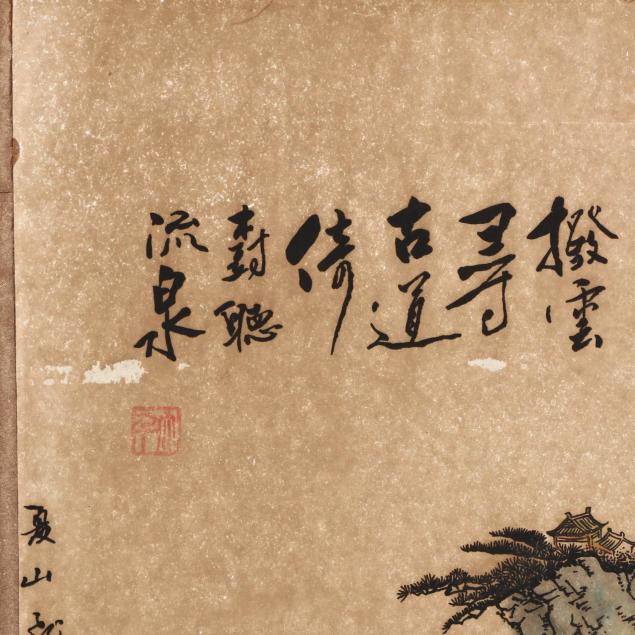 撥雲
尋
古道
倚
樹聽
流泉
夏山